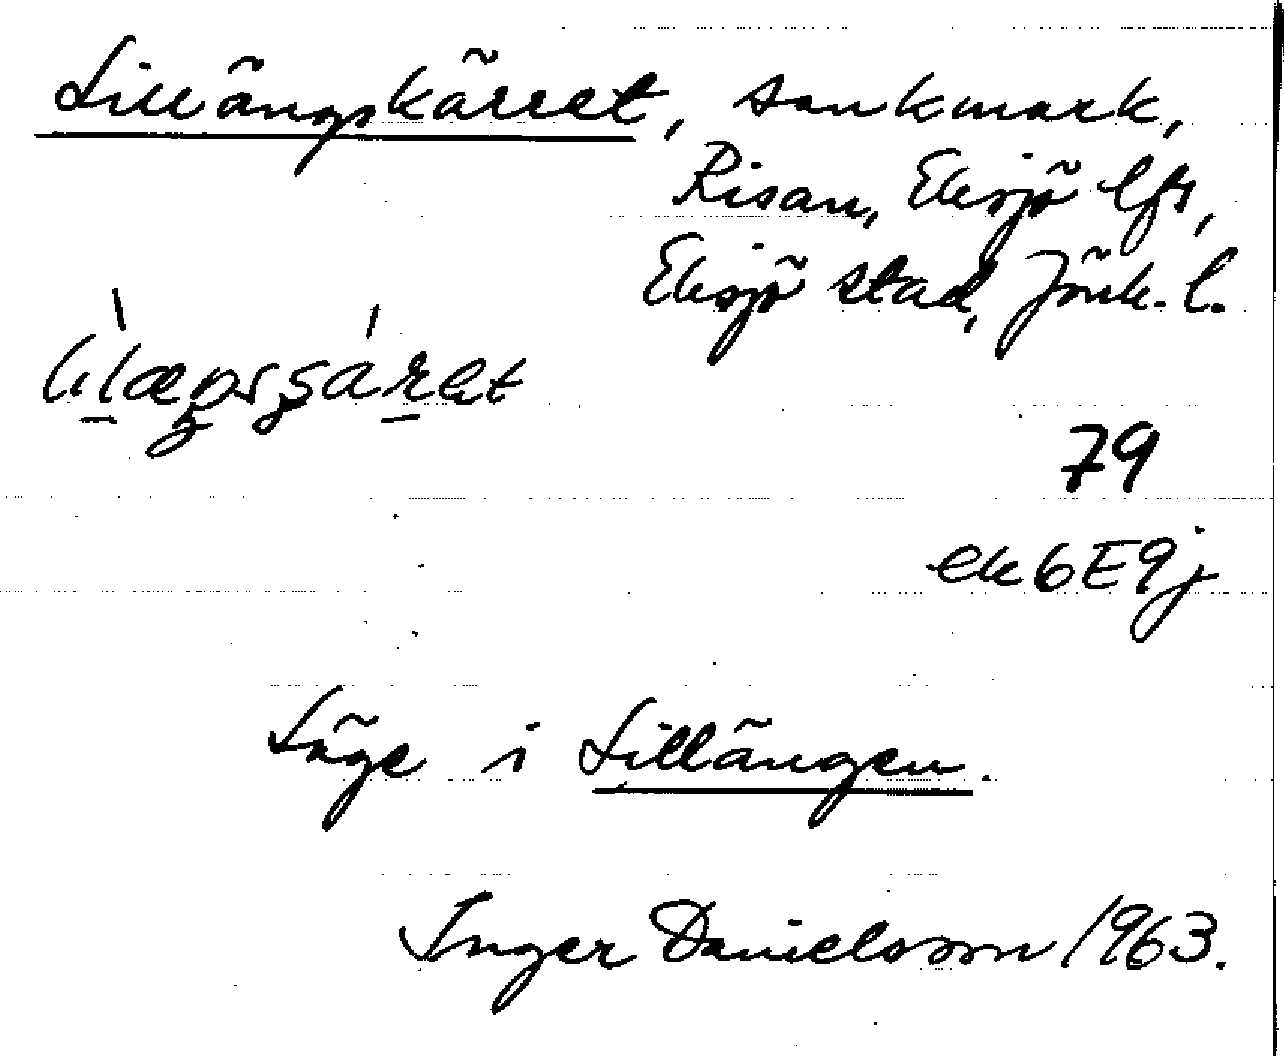 Lillängskärret, sankmark,
Risan, Eksjö lfs,
Eksjö stad, Jönk. l.
79
ek 6E9j
Läge i Lillängen.
Inger Danielsson 1963.